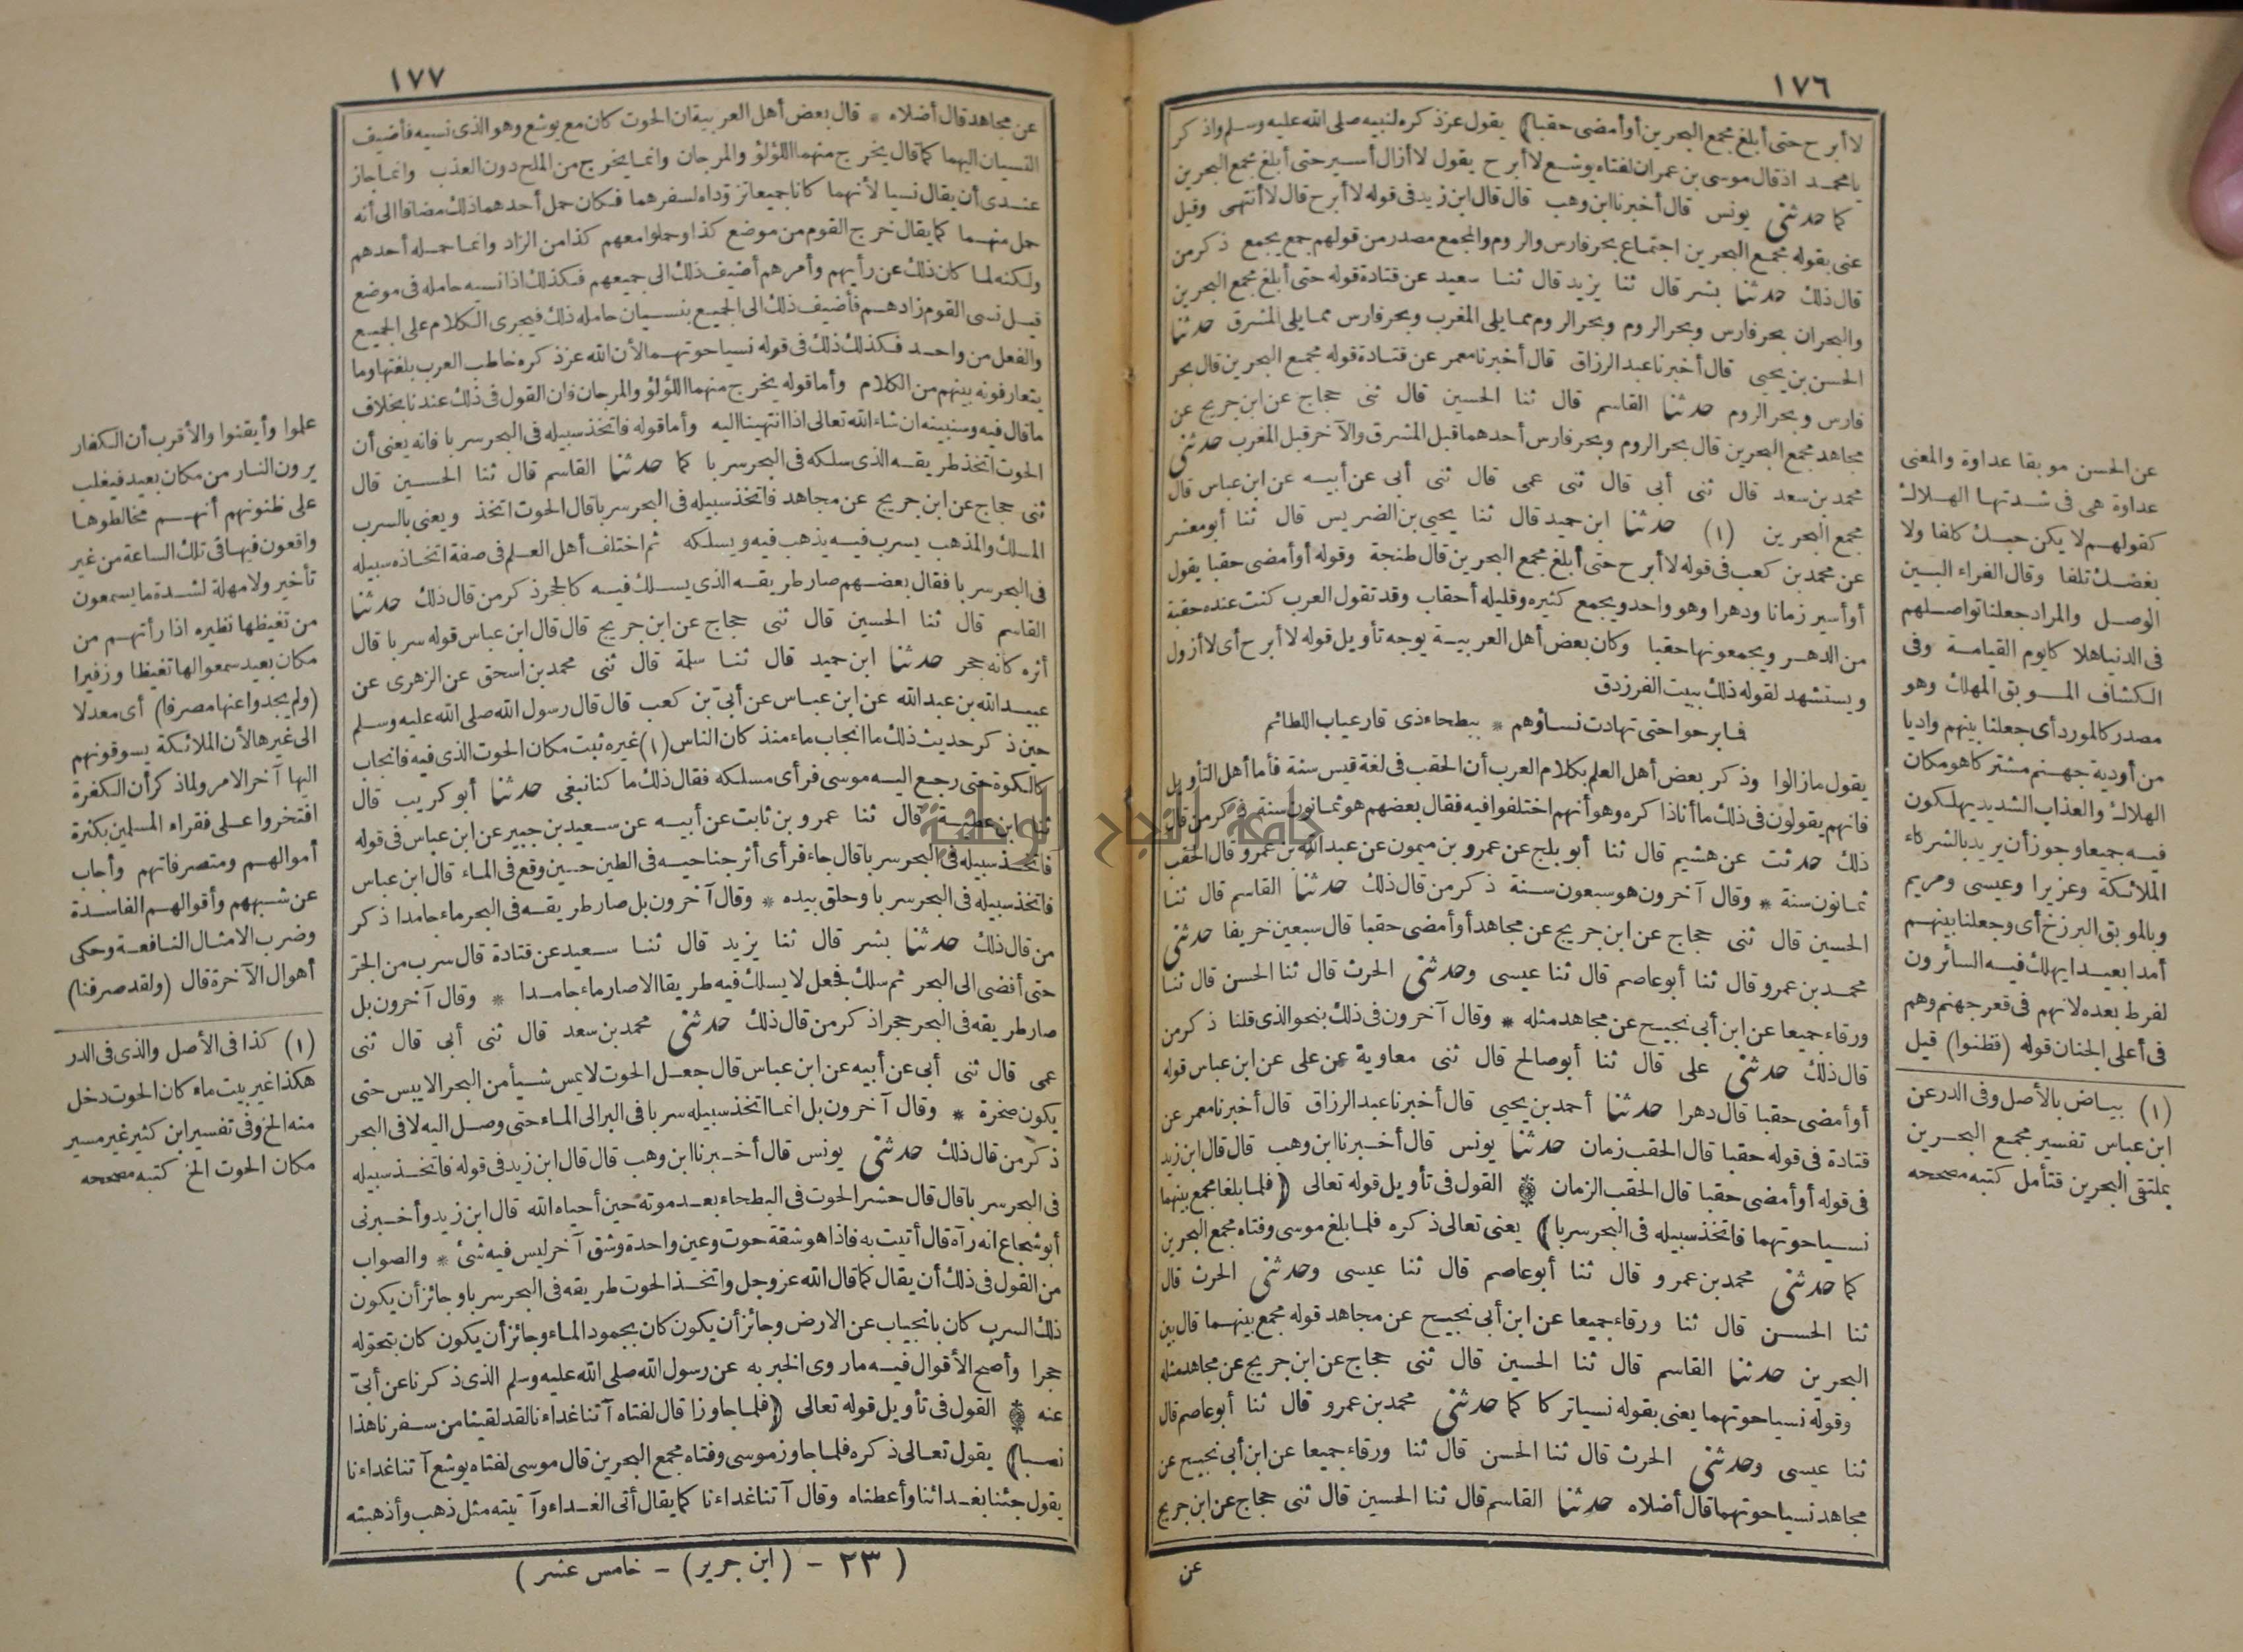 ١٧٦
لا أبرح حتى أبلغ مجمع البحرين أو أمضى حقبا) يقول عز ذكره لنبيه صلى الله عليه وسلم واذكر
يا محمد اذ قال موسى بن عمران لفتاه يوشع لا أبرح يقول لا أزال أسير حتى أبلغ مجمع البحرين
كما حدثنى يونس قال أخبرنا ابن وهب قال قال ابن زيد فى قوله لا أبرح قال لا أنتهى وقيل
عنى بقوله مجمع البحرين اجتماع بحر فارس والروم والمجمع مصدر من قولهم جمع يجمع ذكر من
قال ذلك حدثنا بشر قال ثنا يزيد قال ثنا سعيد عن قتادة قوله حتى أبلغ مجمع البحرين
والبحران بحر فارس وبحر الروم وبحر الروم مما يلى المغرب وبحر فارس مما يلى المشرق حدثنا
الحسن بن يحيى قال أخبرنا عبد الرزاق قال أخبرنا معمر عن قتادة قوله مجمع البحرين قال بحر
فارس وبحر الروم حدثنا القاسم قال ثنا الحسين قال ثنى حجاج عن ابن جريج عن
مجاهد مجمع البحرين قال بحر الروم وبحر فارس أحدهما قبل المشرق والآخر قبل المغرب حدثنى
محمد بن سعد قال ثنى أبى قال ثنى عمى قال ثنى أبى عن أبيه عن ابن عباس قال
مجمع البحرين (١) حدثنا ابن حميد قال ثنا يحيى بن الضريس قال ثنا أبو معشر
عن محمد بن كعب فى قوله لا أبرح حتى أبلغ مجمع البحرين قال طنجة وقوله أو أمضى حقبا يقول
أو أسير زمانا ودهرا وهو واحد ويجمع كثيره وقليله أحقاب وقد تقول العرب كنت عنده حقبة
من الدهر ويجمعونها حقبا وكان بعض أهل العربية يوجه تأويل قوله لا أبرح أى لا أزول
ويستشهد لقوله ذلك ببيت الفرزدق
فما برحوا حتى تهادت نساؤهم * ببطحاء ذى قار عياب اللطائم
يقول ما زالوا وذكر بعض أهل العلم بكلام العرب أن الحقب فى لغة قيس سنة فأما أهل التأويل
فانهم يقولون فى ذلك ما أنا ذاكره وهو أنهم اختلفوا فيه فقال بعضهم هو ثمانون سنة ذكر من قال
ذلك حدثت عن هشيم قال ثنا أبو بلج عن عمرو بن ميمون عن عبد الله بن عمرو قال الحقب
ثمانون سنة * وقال آخرون هو سبعون سنة ذكر من قال ذلك حدثنا القاسم قال ثنا
الحسين قال ثنى حجاج عن ابن جريج عن مجاهد أو أمضى حقبا قال سبعين خريفا حدثنى
محمد بن عمرو قال ثنا أبو عاصم قال ثنا عيسى وحدثنى الحرث قال ثنا الحسن قال ثنا
ورقاء جميعا عن ابن أبى نجيح عن مجاهد مثله * وقال آخرون فى ذلك بنحو الذى قلنا ذكر من
قال ذلك حدثنى على قال ثنا أبو صالح قال ثنى معاوية عن على عن ابن عباس قوله
أو أمضى حقبا قال دهرا حدثنا أحمد بن يحيى قال أخبرنا عبد الرزاق قال أخبرنا معمر عن
قتادة فى قوله حقبا قال الحقب زمان حدثنا يونس قال أخبرنا ابن وهب قال قال ابن زيد
فى قوله أو أمضى حقبا قال الحقب الزمان القول فى تأويل قوله تعالى (فلما بلغا مجمع بينهما
نسيا حوتهما فاتخذ سبيله فى البحر سربا) يعنى تعالى ذكره فلما بلغ موسى وفتاه مجمع البحرين
كما حدثنى محمد بن عمرو قال ثنا أبو عاصم قال ثنا عيسى وحدثنى الحرث قال
ثنا الحسن قال ثنا ورقاء جميعا عن ابن أبى نجيح عن مجاهد قوله مجمع بينهما قال بين
البحرين حدثنا القاسم قال ثنا الحسين قال ثنى حجاج عن ابن جريج عن مجاهد مثله
وقوله نسيا حوتهما يعنى بقوله نسيا تركا كما حدثنى محمد بن عمرو قال ثنا أبو عاصم قال
ثنا عيسى وحدثنى الحرث قال ثنا الحسن قال ثنا ورقاء جميعا عن ابن أبى نجيح عن
مجاهد نسيا حوتهما قال أضلاه حدثنا القاسم قال ثنا الحسين قال ثنى حجاج عن ابن جريج
عن
عن الحسن موبقا عداوة والمعنى
عداوة هى فى شدتها الهلاك
كقولهم لا يكن حبك كلفا ولا
بغضك تلفا وقال الفراء البين
الوصل والمراد جعلنا تواصلهم
فى الدنيا هلاكا يوم القيامة وفى
الكشاف الموبق المهلك وهو
مصدر كالمورد أى جعلنا بينهم واديا
من أودية جهنم مشتركا هو مكان
الهلاك والعذاب الشديد يهلكون
فيه جميعا وجوز أن يريد بالشركاء
الملائكة وعزيرا وعيسى ومريم
وبالموبق البرزخ أى وجعلنا بينهم
أمدا بعيدا يهلك فيه السائرون
لفرط بعده لانهم فى قعر جهنم وهم
فى أعلى الجنان قوله (فظنوا) قيل
(١) بياض بالأصل وفى الدر عن
ابن عباس تفسير مجمع البحرين
بملتقى البحرين فتأمل كتبه مصححه
١٧٧
عن مجاهد قال أضلاه * قال بعض أهل العربية ان الحوت كان مع يوشع وهو الذى نسيه فأضيف
النسيان اليهما كما قال يخرج منهما اللؤلؤ والمرجان وانما يخرج من الملح دون العذب وانما جاز
عندى أن يقال نسيا لأنهما كانا جميعا تزوداه لسفرهما فكان حمل أحدهما ذلك مضافا الى أنه
حمل منهما كما يقال خرج القوم من موضع كذا وحملوا معهم كذا من الزاد وانما حمله أحدهم
ولكنه لما كان ذلك عن رأيهم وأمرهم أضيف ذلك الى جميعهم فكذلك اذا نسيه حامله فى موضع
قيل نسى القوم زادهم فأضيف ذلك الى الجميع بنسيان حامله ذلك فيجرى الكلام على الجميع
والفعل من واحد فكذلك ذلك فى قوله نسيا حوتهما لأن الله عز ذكره خاطب العرب بلغتها وما
يتعارفونه بينهم من الكلام وأما قوله يخرج منهما اللؤلؤ والمرجان فان القول فى ذلك عندنا بخلاف
ما قال فيه وسنبينه ان شاء الله تعالى اذا انتهينا اليه وأما قوله فاتخذ سبيله فى البحر سربا فانه يعنى أن
الحوت اتخذ طريقه الذى سلكه فى البحر سربا كما حدثنا القاسم قال ثنا الحسين قال
ثنى حجاج عن ابن جريج عن مجاهد فاتخذ سبيله فى البحر سربا قال الحوت اتخذ ويعنى بالسرب
المسلك والمذهب يسرب فيه يذهب فيه ويسلكه ثم اختلف أهل العلم فى صفة اتخاذه سبيله
فى البحر سربا فقال بعضهم صار طريقه الذى يسلك فيه كالحجر ذكر من قال ذلك حدثنا
القاسم قال ثنا الحسين قال ثنى حجاج عن ابن جريج قال قال ابن عباس قوله سربا قال
أثره كأنه حجر حدثنا ابن حميد قال ثنا سلمة قال ثنى محمد بن اسحق عن الزهرى عن
عبيد الله بن عبد الله عن ابن عباس عن أبىّ بن كعب قال قال رسول الله صلى الله عليه وسلم
حين ذكر حديث ذلك ما انجاب ماء منذ كان الناس (١) غيره ثبت مكان الحوت الذى فيه فانجاب
كالكوة حتى رجع اليه موسى فرأى مسلكه فقال ذلك ما كنا نبغى حدثنا أبو كريب قال
ثنا ابن عطية قال ثنا عمرو بن ثابت عن أبيه عن سعيد بن جبير عن ابن عباس فى قوله
فاتخذ سبيله فى البحر سربا قال جاء فرأى أثر جناحيه فى الطين حين وقع فى الماء قال ابن عباس
فاتخذ سبيله فى البحر سربا وحلق بيده * وقال آخرون بل صار طريقه فى البحر ماء جامدا ذكر
من قال ذلك حدثنا بشر قال ثنا يزيد قال ثنا سعيد عن قتادة قال سرب من الجرّ
حتى أفضى الى البحر ثم سلك فجعل لا يسلك فيه طريقا الا صار ماء جامدا * وقال آخرون بل
صار طريقه فى البحر حجرا ذكر من قال ذلك حدثنى محمد بن سعد قال ثنى أبى قال ثنى
عمى قال ثنى أبى عن أبيه عن ابن عباس قال جعل الحوت لا يمس شيأ من البحر الا يبس حتى
يكون صخرة * وقال آخرون بل انما اتخذ سبيله سربا فى البر الى الماء حتى وصل اليه لا فى البحر
ذكر من قال ذلك حدثنى يونس قال أخبرنا ابن وهب قال قال ابن زيد فى قوله فاتخذ سبيله
فى البحر سربا قال قال حشر الحوت فى البطحاء بعد موته حين أحياه الله قال ابن زيد وأخبرنى
أبو شجاع انه رآه قال أتيت به فاذا هو شقة حوت وعين واحدة وشق آخر ليس فيه شئ * والصواب
من القول فى ذلك أن يقال كما قال الله عز وجل واتخذ الحوت طريقه فى البحر سربا وجائز أن يكون
ذلك السرب كان بانجياب عن الارض وجائز أن يكون كان بجمود الماء وجائز أن يكون كان بتحوّله
حجرا وأصح الأقوال فيه ما روى الخبر به عن رسول الله صلى الله عليه وسلم الذى ذكرنا عن أبىّ
عنه القول فى تأويل قوله تعالى (فلما جاوزا قال لفتاه آتنا غداءنا لقد لقينا من سفرنا هذا
نصبا) يقول تعالى ذكره فلما جاوز موسى وفتاه مجمع البحرين قال موسى لفتاه يوشع آتنا غداءنا
يقول جئنا بغدائنا وأعطناه وقال آتنا غداءنا كما يقال أتى الغداء وآتيته مثل ذهب وأذهبته
(٢٣ - (ابن جرير) - خامس عشر)
علموا وأيقنوا والأقرب أن الكفار
يرون النار من مكان بعيد فيغلب
على ظنونهم أنهم مخالطوها
واقعون فيها فى تلك الساعة من غير
تأخير ولا مهلة لشدة ما يسمعون
من تغيظها نظيره اذا رأتهم من
مكان بعيد سمعوا لها تغيظا وزفيرا
(ولم يجدوا عنها مصرفا) أى معدلا
الى غيرها لأن الملائكة يسوقونهم
اليها آخر الامر ولما ذكر أن الكفرة
افتخروا على فقراء المسلمين بكثرة
أموالهم ومتصرفاتهم وأجاب
عن شبههم وأقوالهم الفاسدة
وضرب الامثال النافعة وحكى
أهوال الآخرة قال (ولقد صرفنا)
(١) كذا فى الأصل والذى فى الدر
هكذا غير بيت ماء كان الحوت دخل
منه الخ وفى تفسير ابن كثير غير مسير
مكان الحوت الخ كتبه مصححه
جامعة النجاح الوطنية